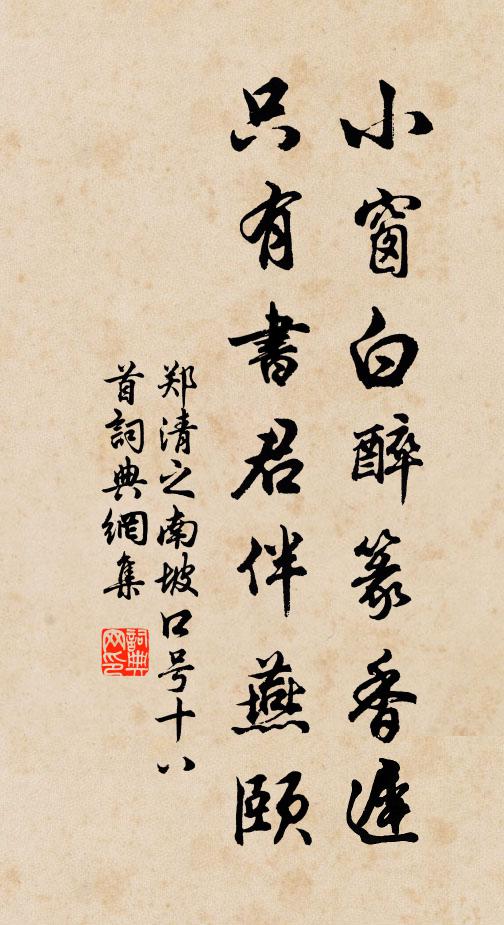 小窗白醉篆香遲
只有書君伴燕頤
郑清之南坡口号十八
首詞典網集
詞典网印